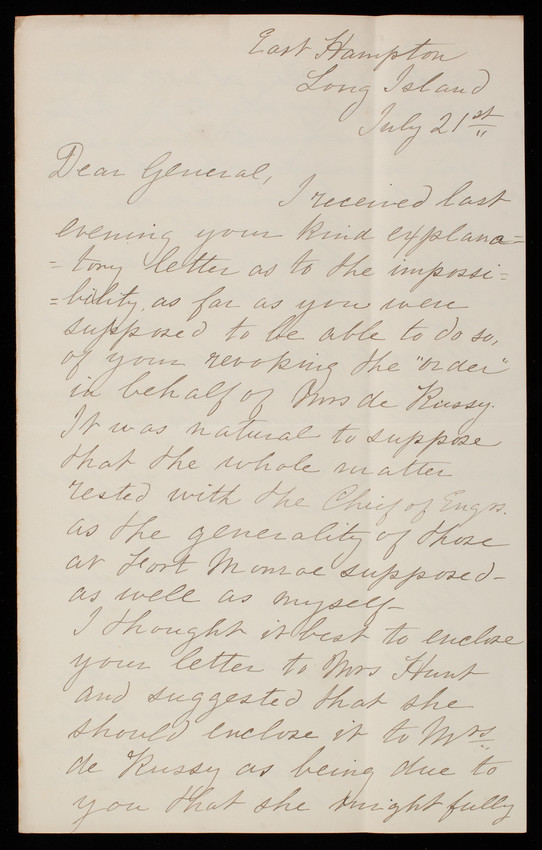 East Hampton
Long Island
July 21st
Dear General,
I received last
evening your kind explana=
=tory letter as to the impossi=
=bility, as far as you were
supposed to be able to do so,
of your revoking the "order"
in behalf of Mrs de Russy.
It was natural to suppose
that the whole matter
rested with the Chief of Engrs.
as the generality of those
at Fort Monroe supposed-
as well as myself-
I thought it best to enclose
your letter to Mrs Hunt
and suggested that she
should enclose it to Mrs
de Russy as being due to
you that she might fully